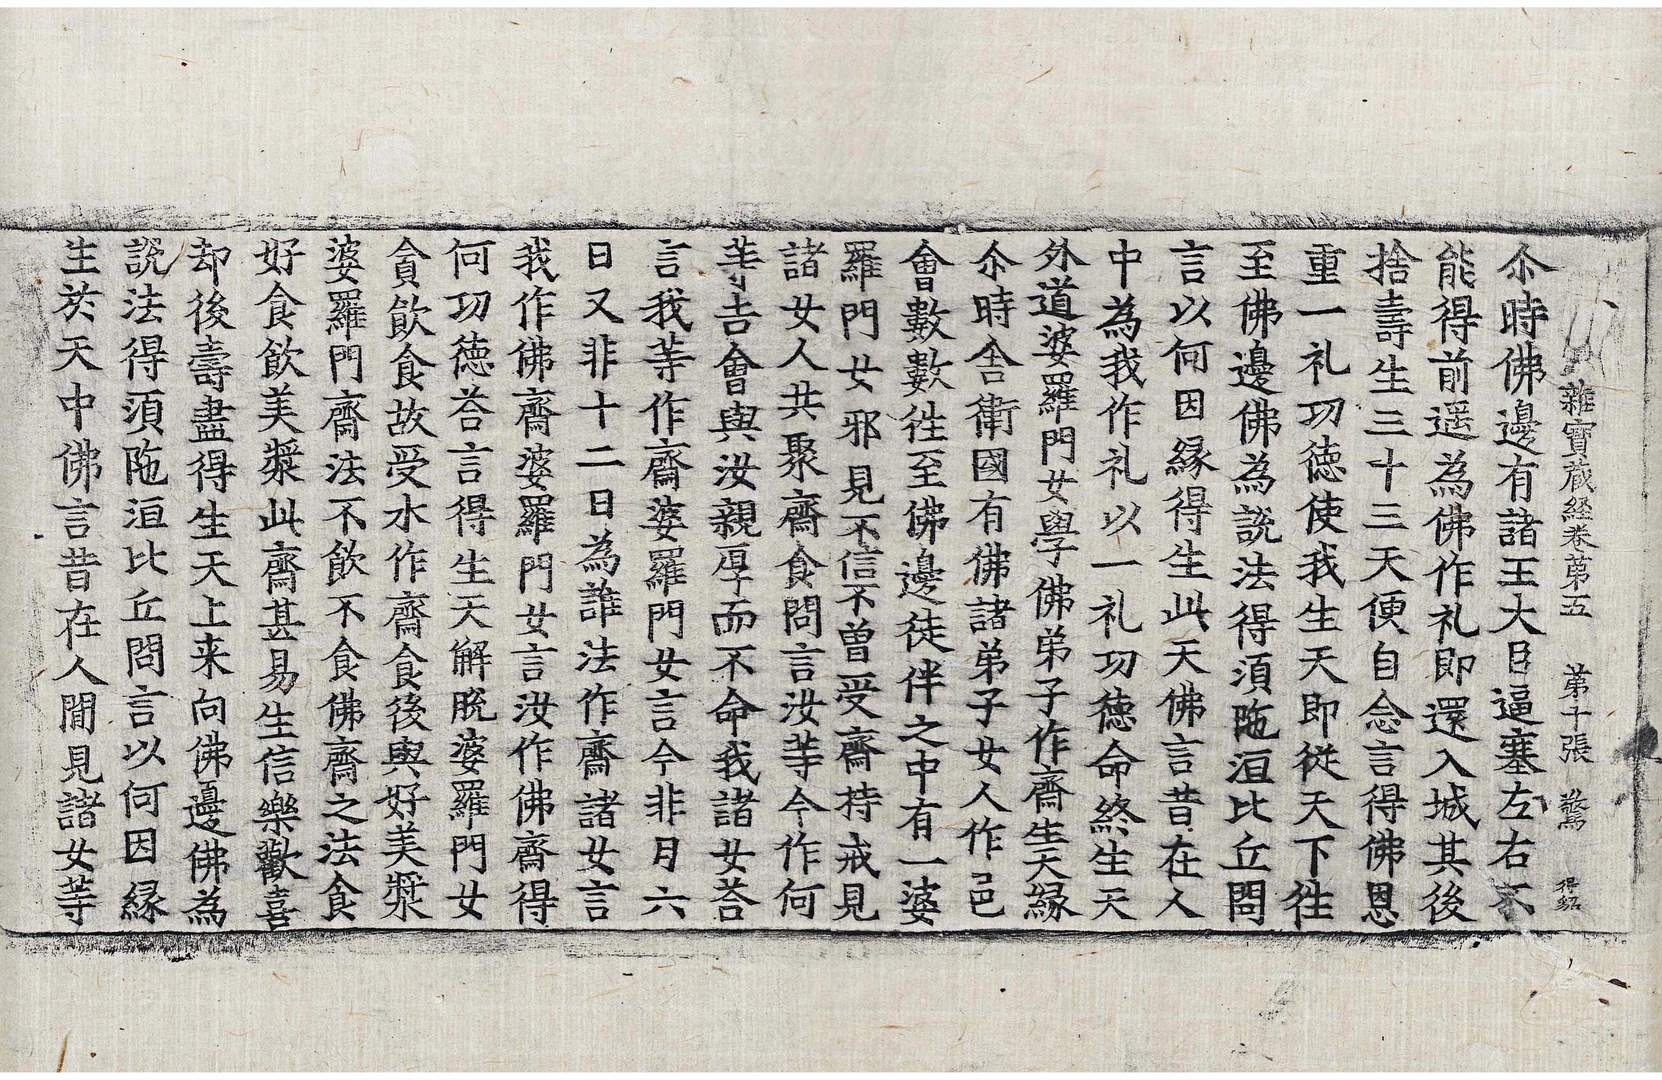 雜寶蔵経卷第五 第十張 驚 得貂
尒時佛邊有諸王大臣逼塞左右不
能得前遥為佛作礼即還入城其後
捨壽生三十三天便自念言得佛恩
重一礼功德使我生天即從天下往
至佛邊佛為說法得須陁洹比丘問
言以何因縁得生此天佛言昔在人
中為我作礼以一礼功德命終生天
外道婆羅門女學佛弟子作齋生天縁
尒時舎衛國有佛諸弟子女人作邑
會數數往至佛邊徒伴之中有一婆
羅門女邪見不信不曾受齋持戒見
諸女人共聚齋食問言汝等今作何
等吉會與汝親厚而不命我諸女荅
言我等作齋婆羅門女言今非月六
日又非十二日為誰法作齋諸女言
我作佛齋婆羅門女言汝作佛齋得
何功德荅言得生天解脫婆羅門女
貪飲食故受水作齋食後與好美漿
婆羅門齋法不飲不食佛齋之法食
好食飲美漿此齋甚易生信樂歡喜
却後壽盡得生天上来向佛邊佛為
說法得須陁洹比丘問言以何因縁
生於天中佛言昔在人間見諸女等